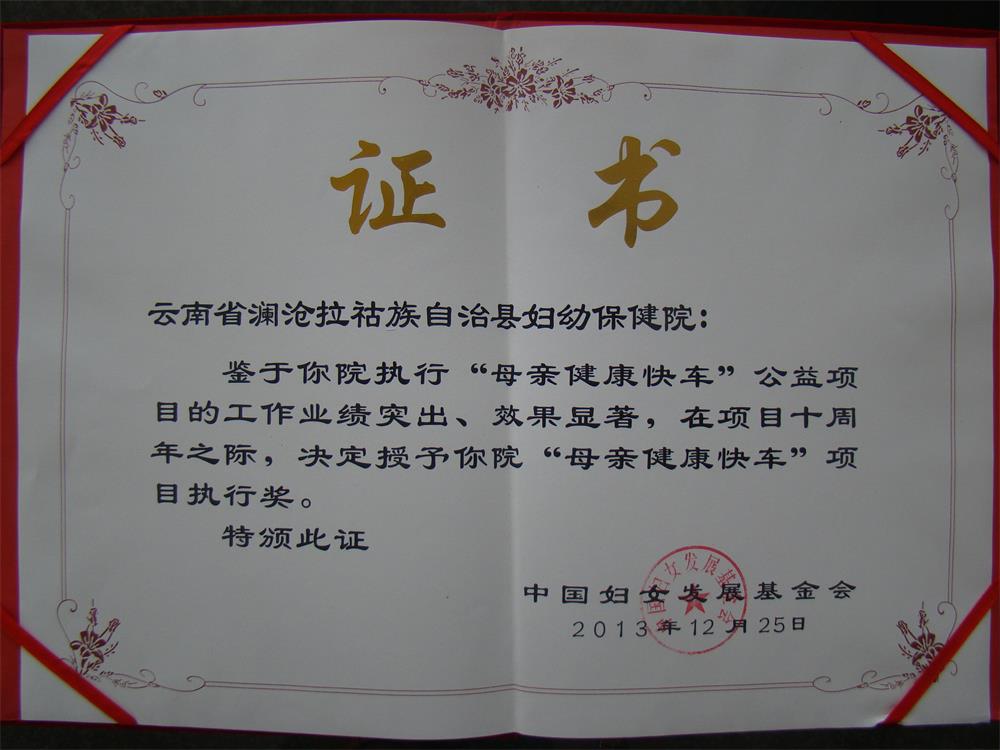 证 书
云南省澜沧拉祜族自治县妇幼保健院：
鉴于你院执行“母亲健康快车”公益项
目的工作业绩突出、效果显著，在项目十周
年之际，决定授予你院“母亲健康快车”项
目执行奖。
特颁此证
中国妇女发展基金会
2013年12月25日
中国妇女发展基金会